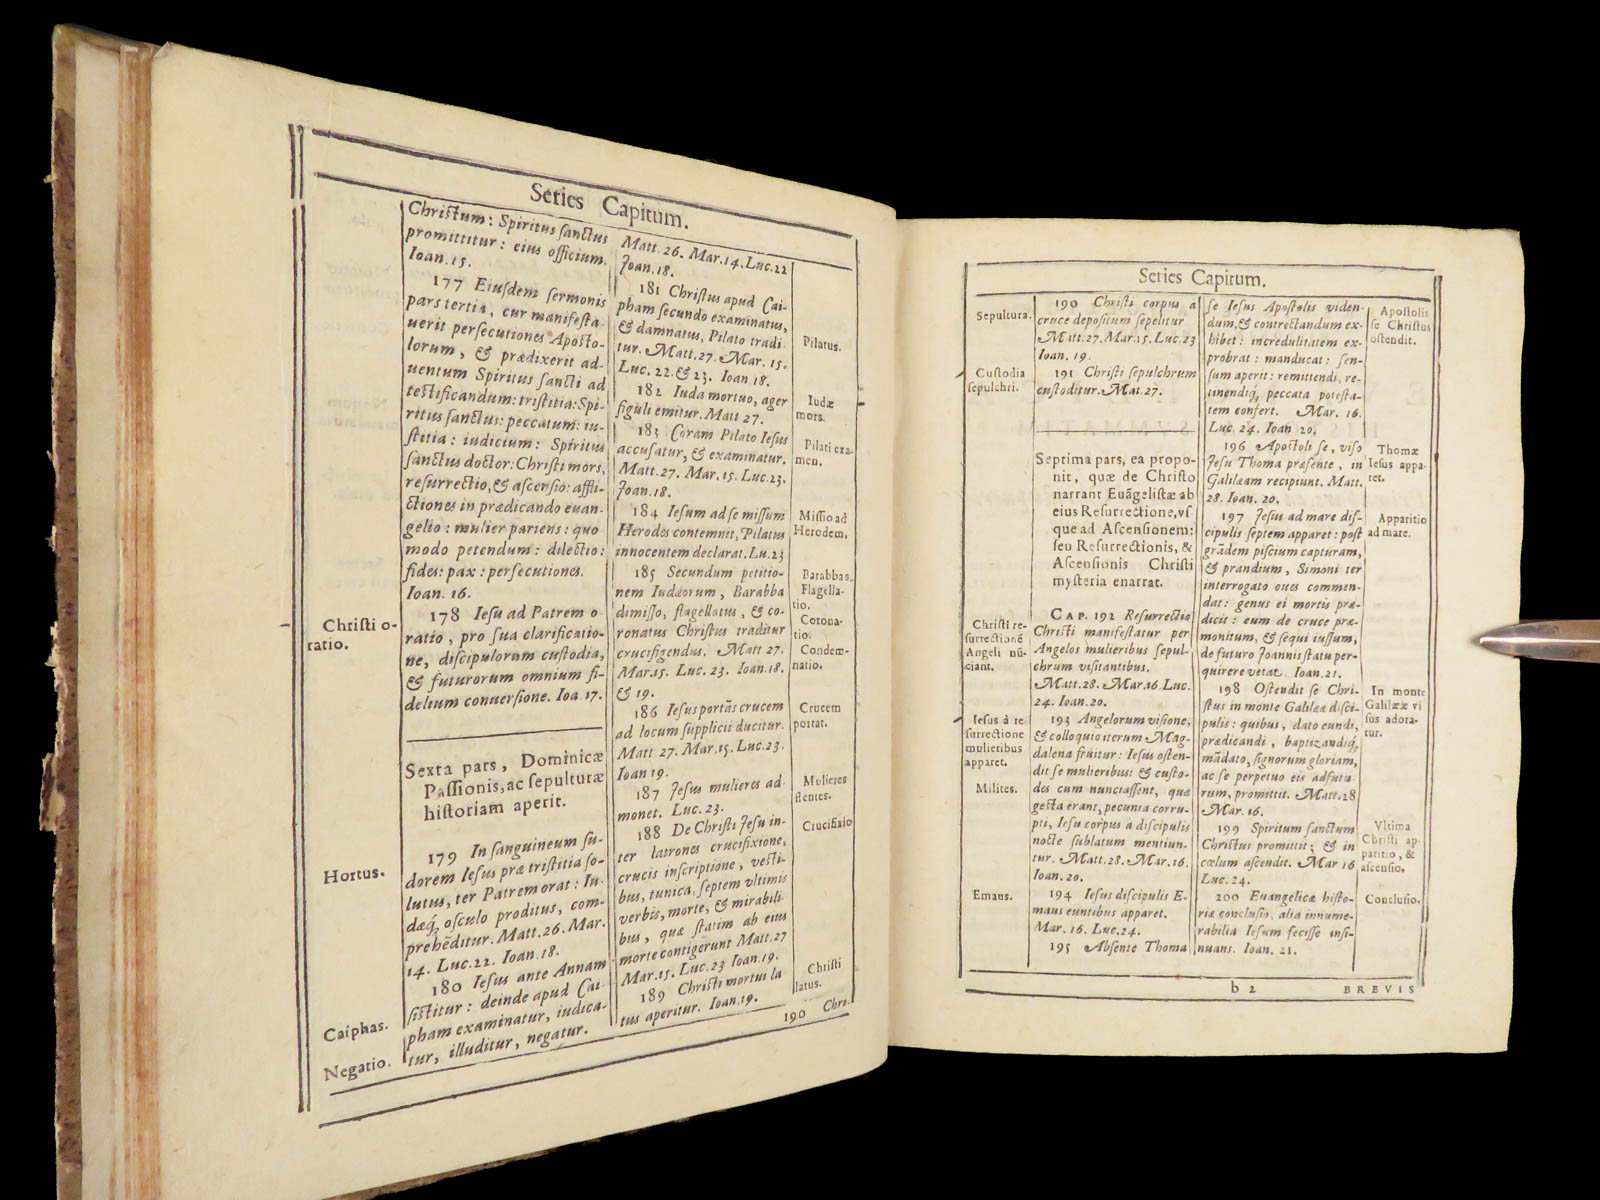 Series Capitum.
Christum: Spiritus sanctus
promittitur: eius officium.
Ioan.15.
177 Eiusdem sermonis
pars tertia, cur manifesta-
uerit persecutiones Aposto-
lorum, & prædixerit ad-
uentum Spiritus sancti ad
testificandum: tristitia: Spi-
ritus sanctus: peccatum: iu-
stitia: iudicium: Spiritus
sanctus doctor: Christi mors,
resurrectio, & ascensio: affli-
ctiones in prædicando euan-
gelio: mulier pariens: quo
modo petendum: dilectio:
fides: pax: persecutiones.
Ioan. 16.
Christi o-
ratio.
178 Iesu ad Patrem o
ratio, pro sua clarificatio-
ne, discipulorum custodia,
& futurorum omnium fi-
delium conuersione. Ioa.17.
Sexta pars, Dominicæ
Passionis, ac sepulturæ
historiam aperit.
Hortus.
179 In sanguineum su-
dorem Iesus præ tristitia so-
lutus, ter Patrem orat: Iu-
dæq́; osculo proditus, com-
prehẽditur. Matt.26. Mar.
14. Luc.22. Ioan.18.
Caiphas.
Negatio.
180 Iesus ante Annam
sistitur: deinde apud Cai-
pham examinatur, iudica-
tur, illuditur, negatur.
Matt.26. Mar.14. Luc.22
Ioan.18.
181 Christus apud Cai-
pham secundo examinatus,
& damnatus, Pilato tradi-
tur. Matt.27. Mar. 15.
Luc. 22. & 23. Ioan.18.
Pilatus.
182 Iuda mortuo, ager
figuli emitur. Matt 27.
Iudæ
mors.
183 Coram Pilato Iesus
accusatur, & examinatur.
Matt.27. Mar.15. Luc.23.
Ioan.18.
Pilati exa-
men.
184 Iesum ad se missum
Herodes contemnit, Pilatus
innocentem declarat. Lu.23
Missio ad
Herodem.
185 Secundum petitio-
nem Iudæorum, Barabba
dimisso, flagellatus, & co-
ronatus Christus traditur
crucifigendus. Matt 27.
Mar.15. Luc. 23. Ioan.18.
& 19.
Barabbas.
Flagella-
tio.
Corona-
tio.
Condem-
natio.
186 Iesus portãs crucem
ad locum supplicii ducitur.
Matt 27. Mar.15. Luc.23.
Ioan 19.
Crucem
portat.
187 Jesus mulieres ad
monet. Luc. 23.
Mulieres
flentes.
188 De Christi Jesu in-
ter latrones crucifixione,
crucis inscriptione, vesti-
bus, tunica, septem vltimis
verbis, morte, & mirabili-
bus, quæ statim ab eius
morte contigerunt Matt.27
Mar.15. Luc.23 Ioan.19.
Crucifixio
189 Christi mortui la
tus aperitur. Ioan.19.
Christi
latus.
190 Chri-
Series Capitum.
Sepultura.
190 Christi corpus a
cruce depositum sepelitur
Matt.27. Mar.15. Luc.23
Ioan. 19.
Custodia
sepulchri.
191 Christi sepulchrum
custoditur. Mat.27.
Septima pars, ea propo-
nit, quæ de Christo
narrant Euãgelistæ ab
eius Resurrectione, vs-
que ad Ascensionem:
seu Resurrectionis, &
Ascensionis Christi
mysteria enarrat.
Christi re-
surrectionẽ
Angeli nũ-
ciant.
CAP. 192 Resurrectio
Christi manifestatur per
Angelos mulieribus sepul-
chrum visitantibus.
Matt.28. Mar.16. Luc.
24. Ioan.20.
Iesus à re
surrectione
mulieribus
apparet.
Milites.
193 Angelorum visione,
& colloquio iterum Mag-
dalena fruitur: Iesus osten-
dit se mulieribus: & custo-
des cum nunctassent, quæ
gesta erant, pecunia corru-
pti, Iesu corpus a discipulis
nocte sublatum mentiun-
tur. Matt.28. Mar.16.
Ioan.20.
Emaus.
194 Iesus discipulis E-
maus euntibus apparet.
Mar. 16. Luc.24.
195 Absente Thoma
se Iesus Apostolis viden-
dum, & contrectandum ex-
hibet: incredulitatem ex-
probrat: manducat: sen-
sum aperit: remittendi, re-
tinendiq́; peccata potesta-
tem confert. Mar. 16.
Luc. 24. Ioan 20.
Apostolis
se Christus
ostendit.
196 Apostoli se, viso
Jesu Thoma præsente, in
Galilæam recipiunt. Matt.
28. Ioan. 20.
Thomæ
Iesus appa-
ret.
197 Jesus ad mare dis-
cipulis septem apparet: post
grãdem piscium capturam,
& prandium, Simoni ter
interrogato oues commen-
dat: genus ei mortis præ-
dicit: eum de cruce præ-
monitum, & sequi iussum,
de futuro Joannis statu per-
quirere vetat. Ioan.21.
Apparitio
ad mare.
198 Ostendit se Chri-
stus in monte Galilææ disci-
pulis: quibus, dato eundi,
prædicandi, baptizandiq́;
mãdato, signorum gloriam,
ac se perpetuo eis adfutu-
rum, promittit. Matt.28
Mar.16.
In monte
Galilææ vi
sus adora-
tur.
199 Spiritum sanctum
Christus promittit; & in
cœlum ascendit. Mar 16
Luc.24.
Vltima
Christi ap-
paritio, &
ascensio.
200 Euangelicæ histo-
riæ conclusio, alia innume-
rabilia Iesum fecisse insi-
nuans. Ioan. 21.
Conclusio.
b 2
BREVIS